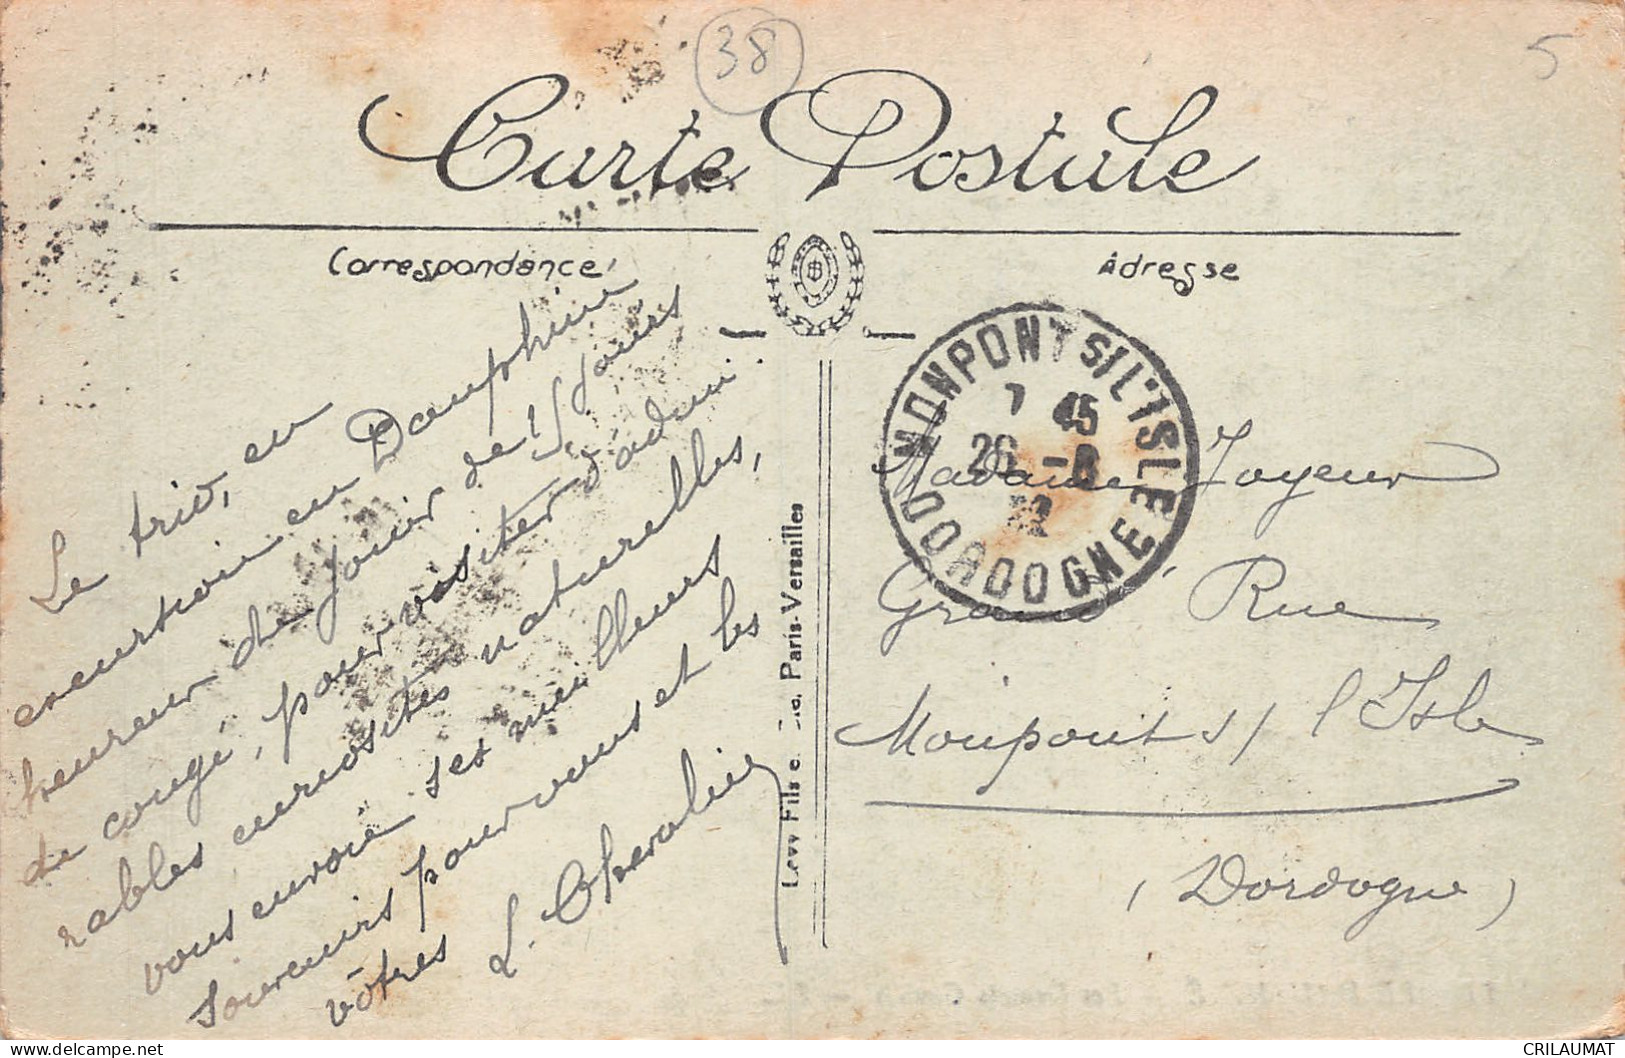 38
5
Carte Postale
Correspondance
Adresse
Le trio, en
excursion en Dauphiné
heureux de jouir de 15 jours
de congé, pour visiter d'admi-
rables curiosités naturelles,
vous envoie ses meilleurs
souvenirs pour vous et les
vôtres
L. Chevalier
Levy Fils e Cie. Paris-Versailles
MONPONT S/L'ISLE
7 45
26 -8
32
DORDOGNE
Madame Joyeux
Grand' Rue
Monpont s/ l'Isle
(Dordogne)
CRILAUMAT